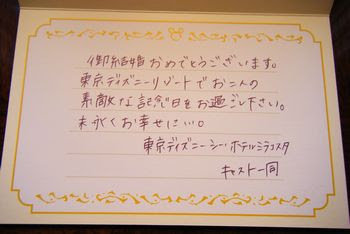 御結婚おめでとうございます。
東京ディズニーリゾートでお二人の
素敵な記念日をお過ごし下さい。
末永くお幸せに…。
東京ディズニーシー・ホテルミラコスタ
キャスト一同